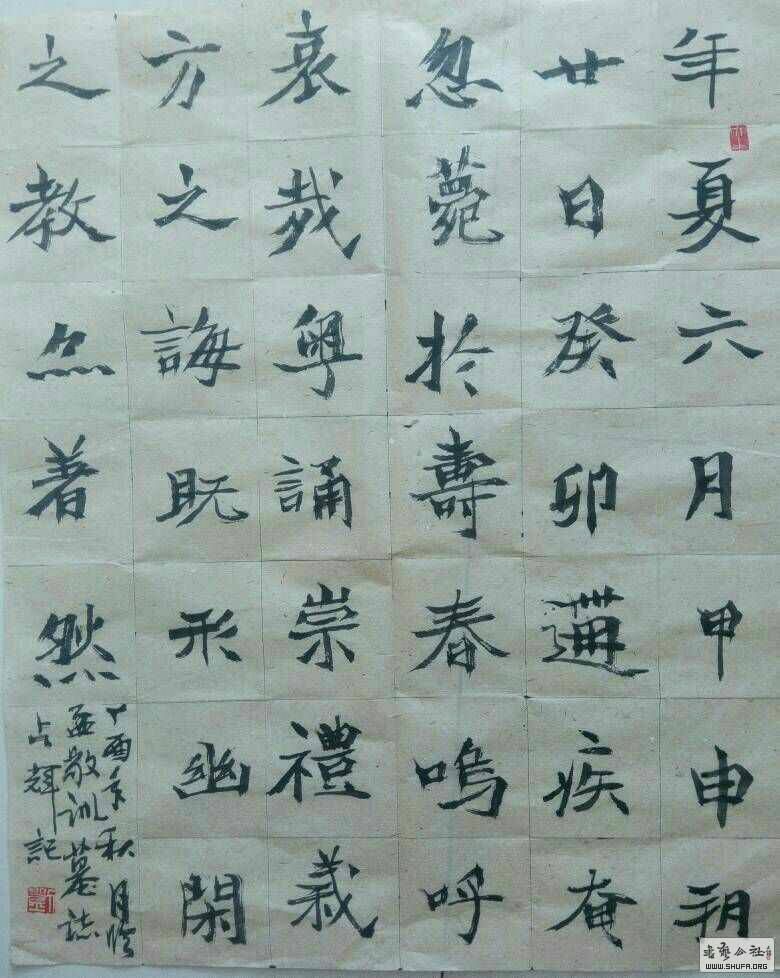 年夏六月甲申朔
廿日癸卯遘疾奄
忽薨於壽春嗚呼
哀哉粤誦崇禮義
方之誨既形幽閑
之教亦著然
丁酉年秋月临
孟敬训墓誌
占輝記
书艺公社
WWW.SHUFA.ORG